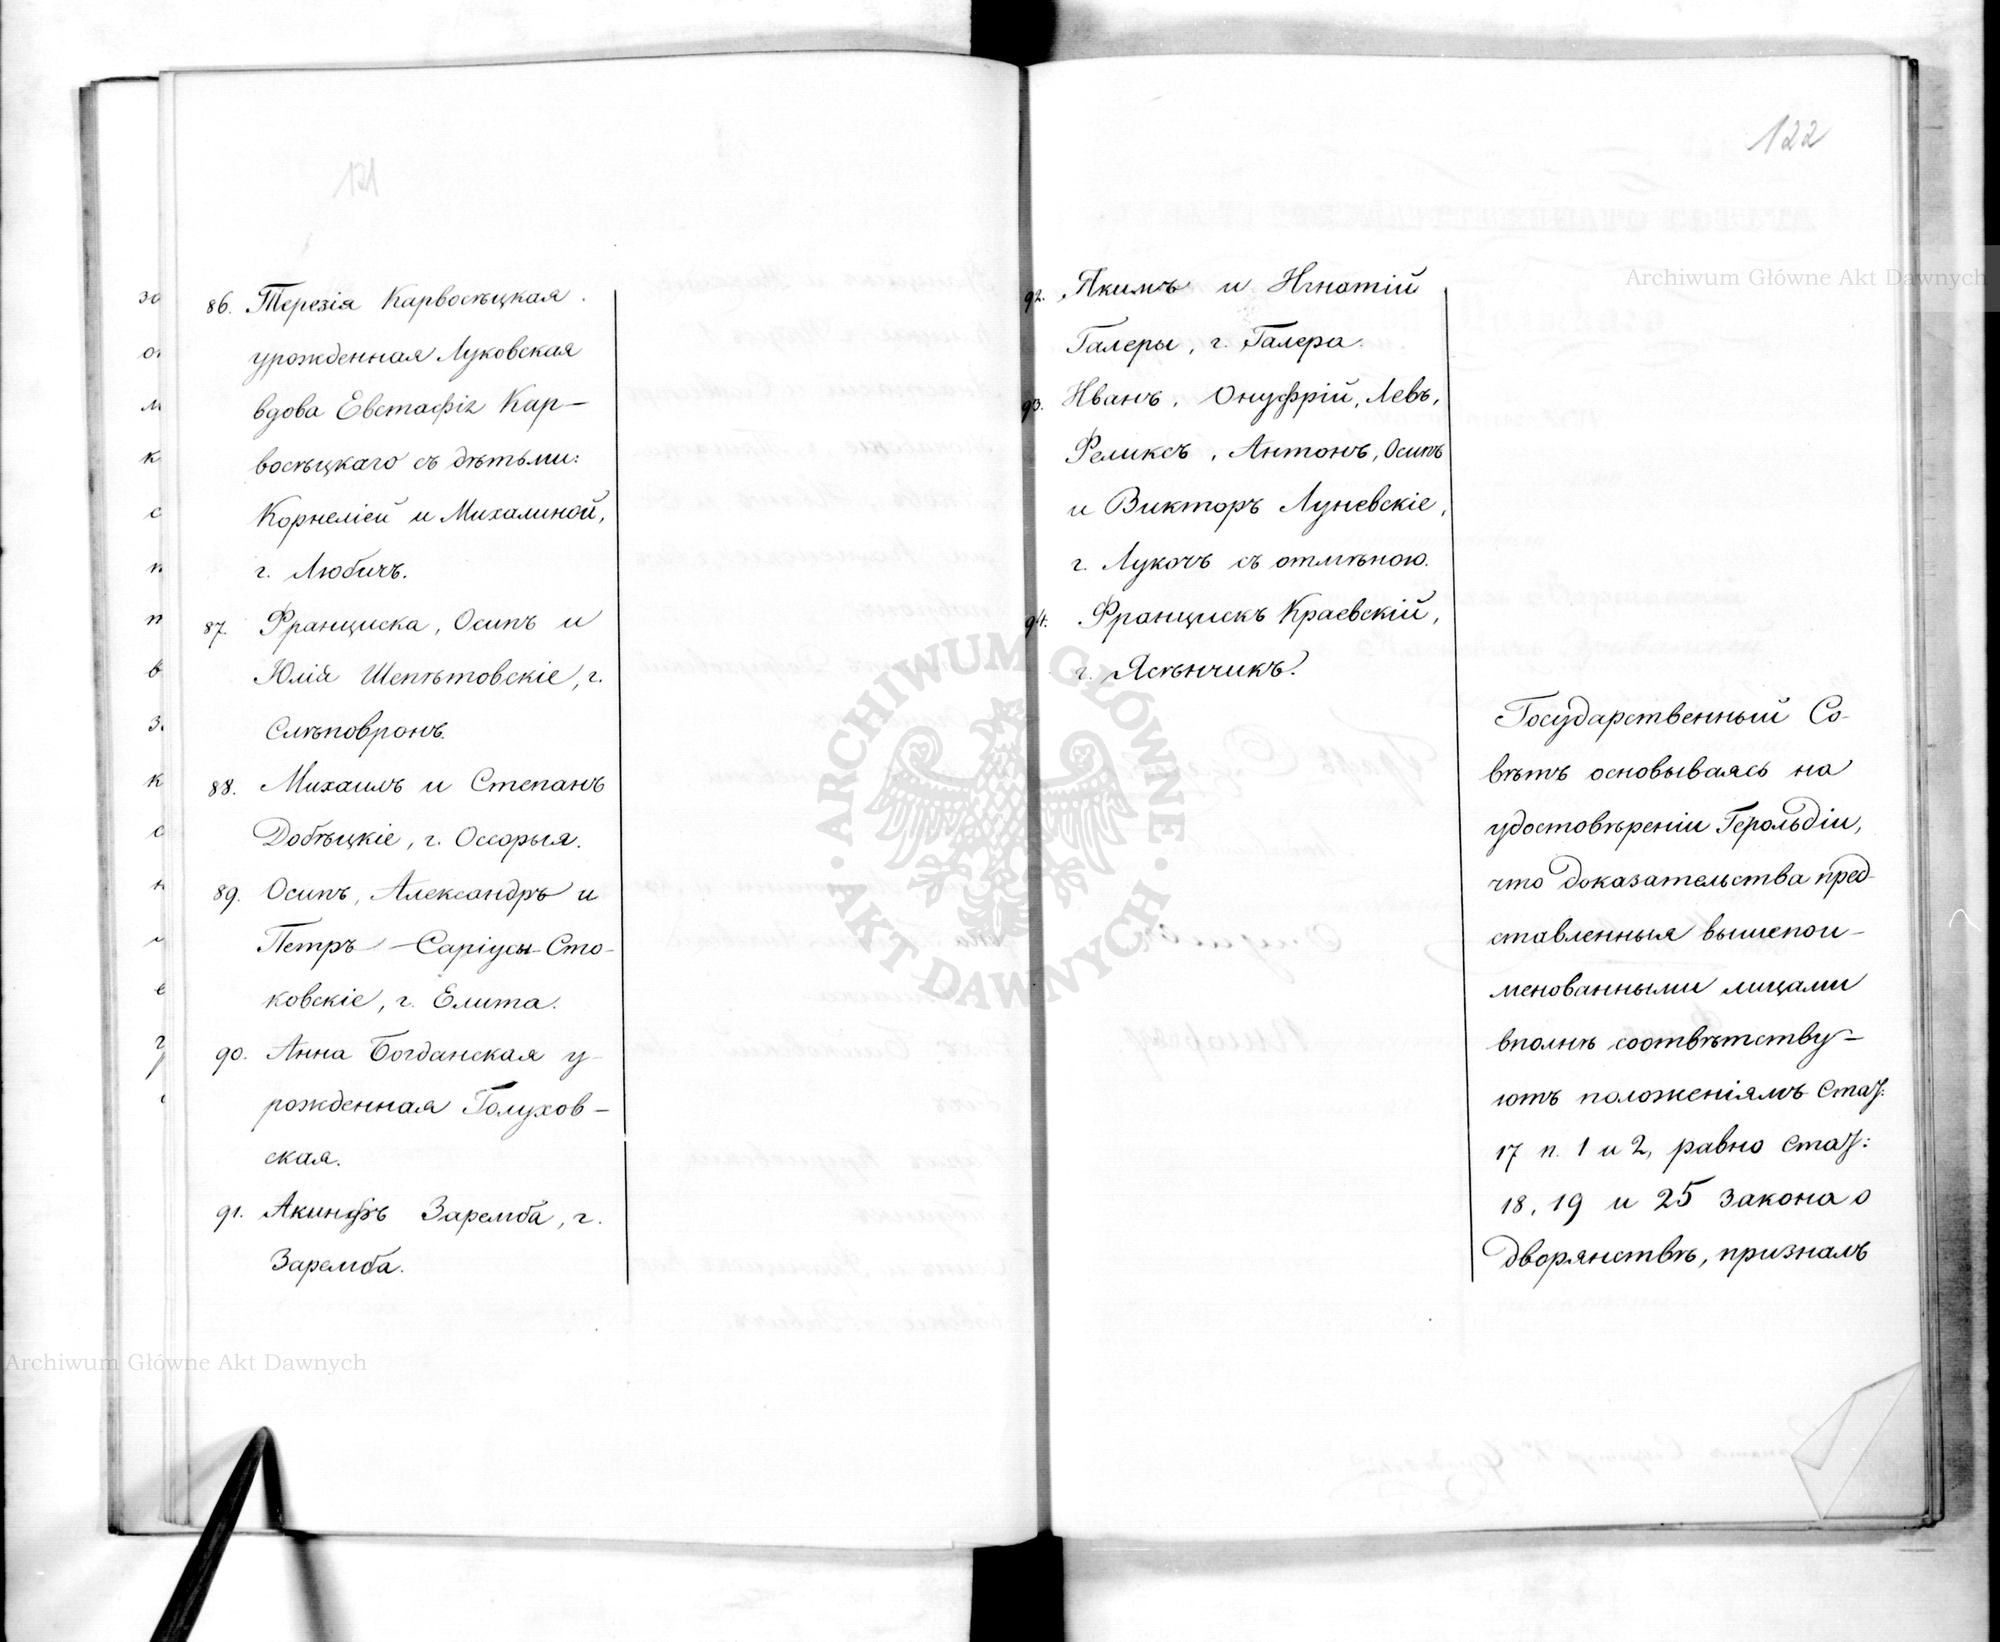 121
86. Терезія Карвосѣцкая
урожденная Луковская
вдова Евстафія Кар-
восѣцкаго съ дѣтьми:
Корнеліей и Михалиной,
г. Любичъ.
87. Франциска, Осипъ и
Юлія Шепѣтовскіе, г.
Слѣповронъ.
88. Михаилъ и Степанъ
Добѣцкіе, г. Оссорыя.
89. Осипъ, Александръ и
Петръ Саріусы-Сто-
ковскіе, г. Елита.
90. Анна Богданская у-
рожденная Голухов-
ская.
91. Акинфъ Заремба, г.
Заремба.
122
92. Якимъ и Игнатій
Галеры, г. Галера.
93. Иванъ, Онуфрій, Левъ,
Феликсъ, Антонъ, Осипъ
и Викторъ Луневскіе,
г. Лукочъ съ отмѣною.
94. Францискъ Краевскій,
г. Ясѣнчикъ.
Государственный Со-
вѣтъ основываясь на
удостовѣреніи Герольдіи,
что доказательства пред-
ставленныя вышепои-
менованными лицами
вполнѣ соотвѣтству-
ютъ положеніямъ стат:
17 п. 1 и 2, равно стат:
18, 19 и 25 закона о
дворянствѣ, призналъ
Archiwum Główne Akt Dawnych
Archiwum Główne Akt Dawnych
ARCHIWUM GŁÓWNE
AKT DAWNYCH